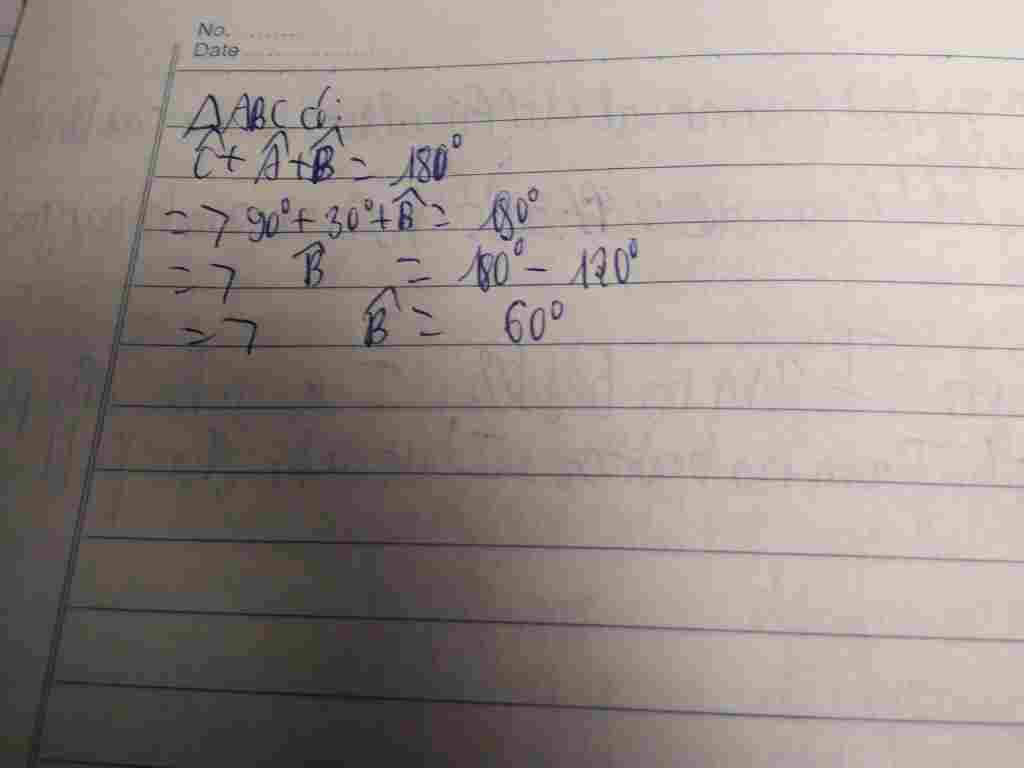 No. ........
Date ...............
ΔABC có:
Ĉ + Â + B̂ = 180°
=> 90° + 30° + B̂ = 180°
=> B̂ = 180° - 120°
=> B̂ = 60°